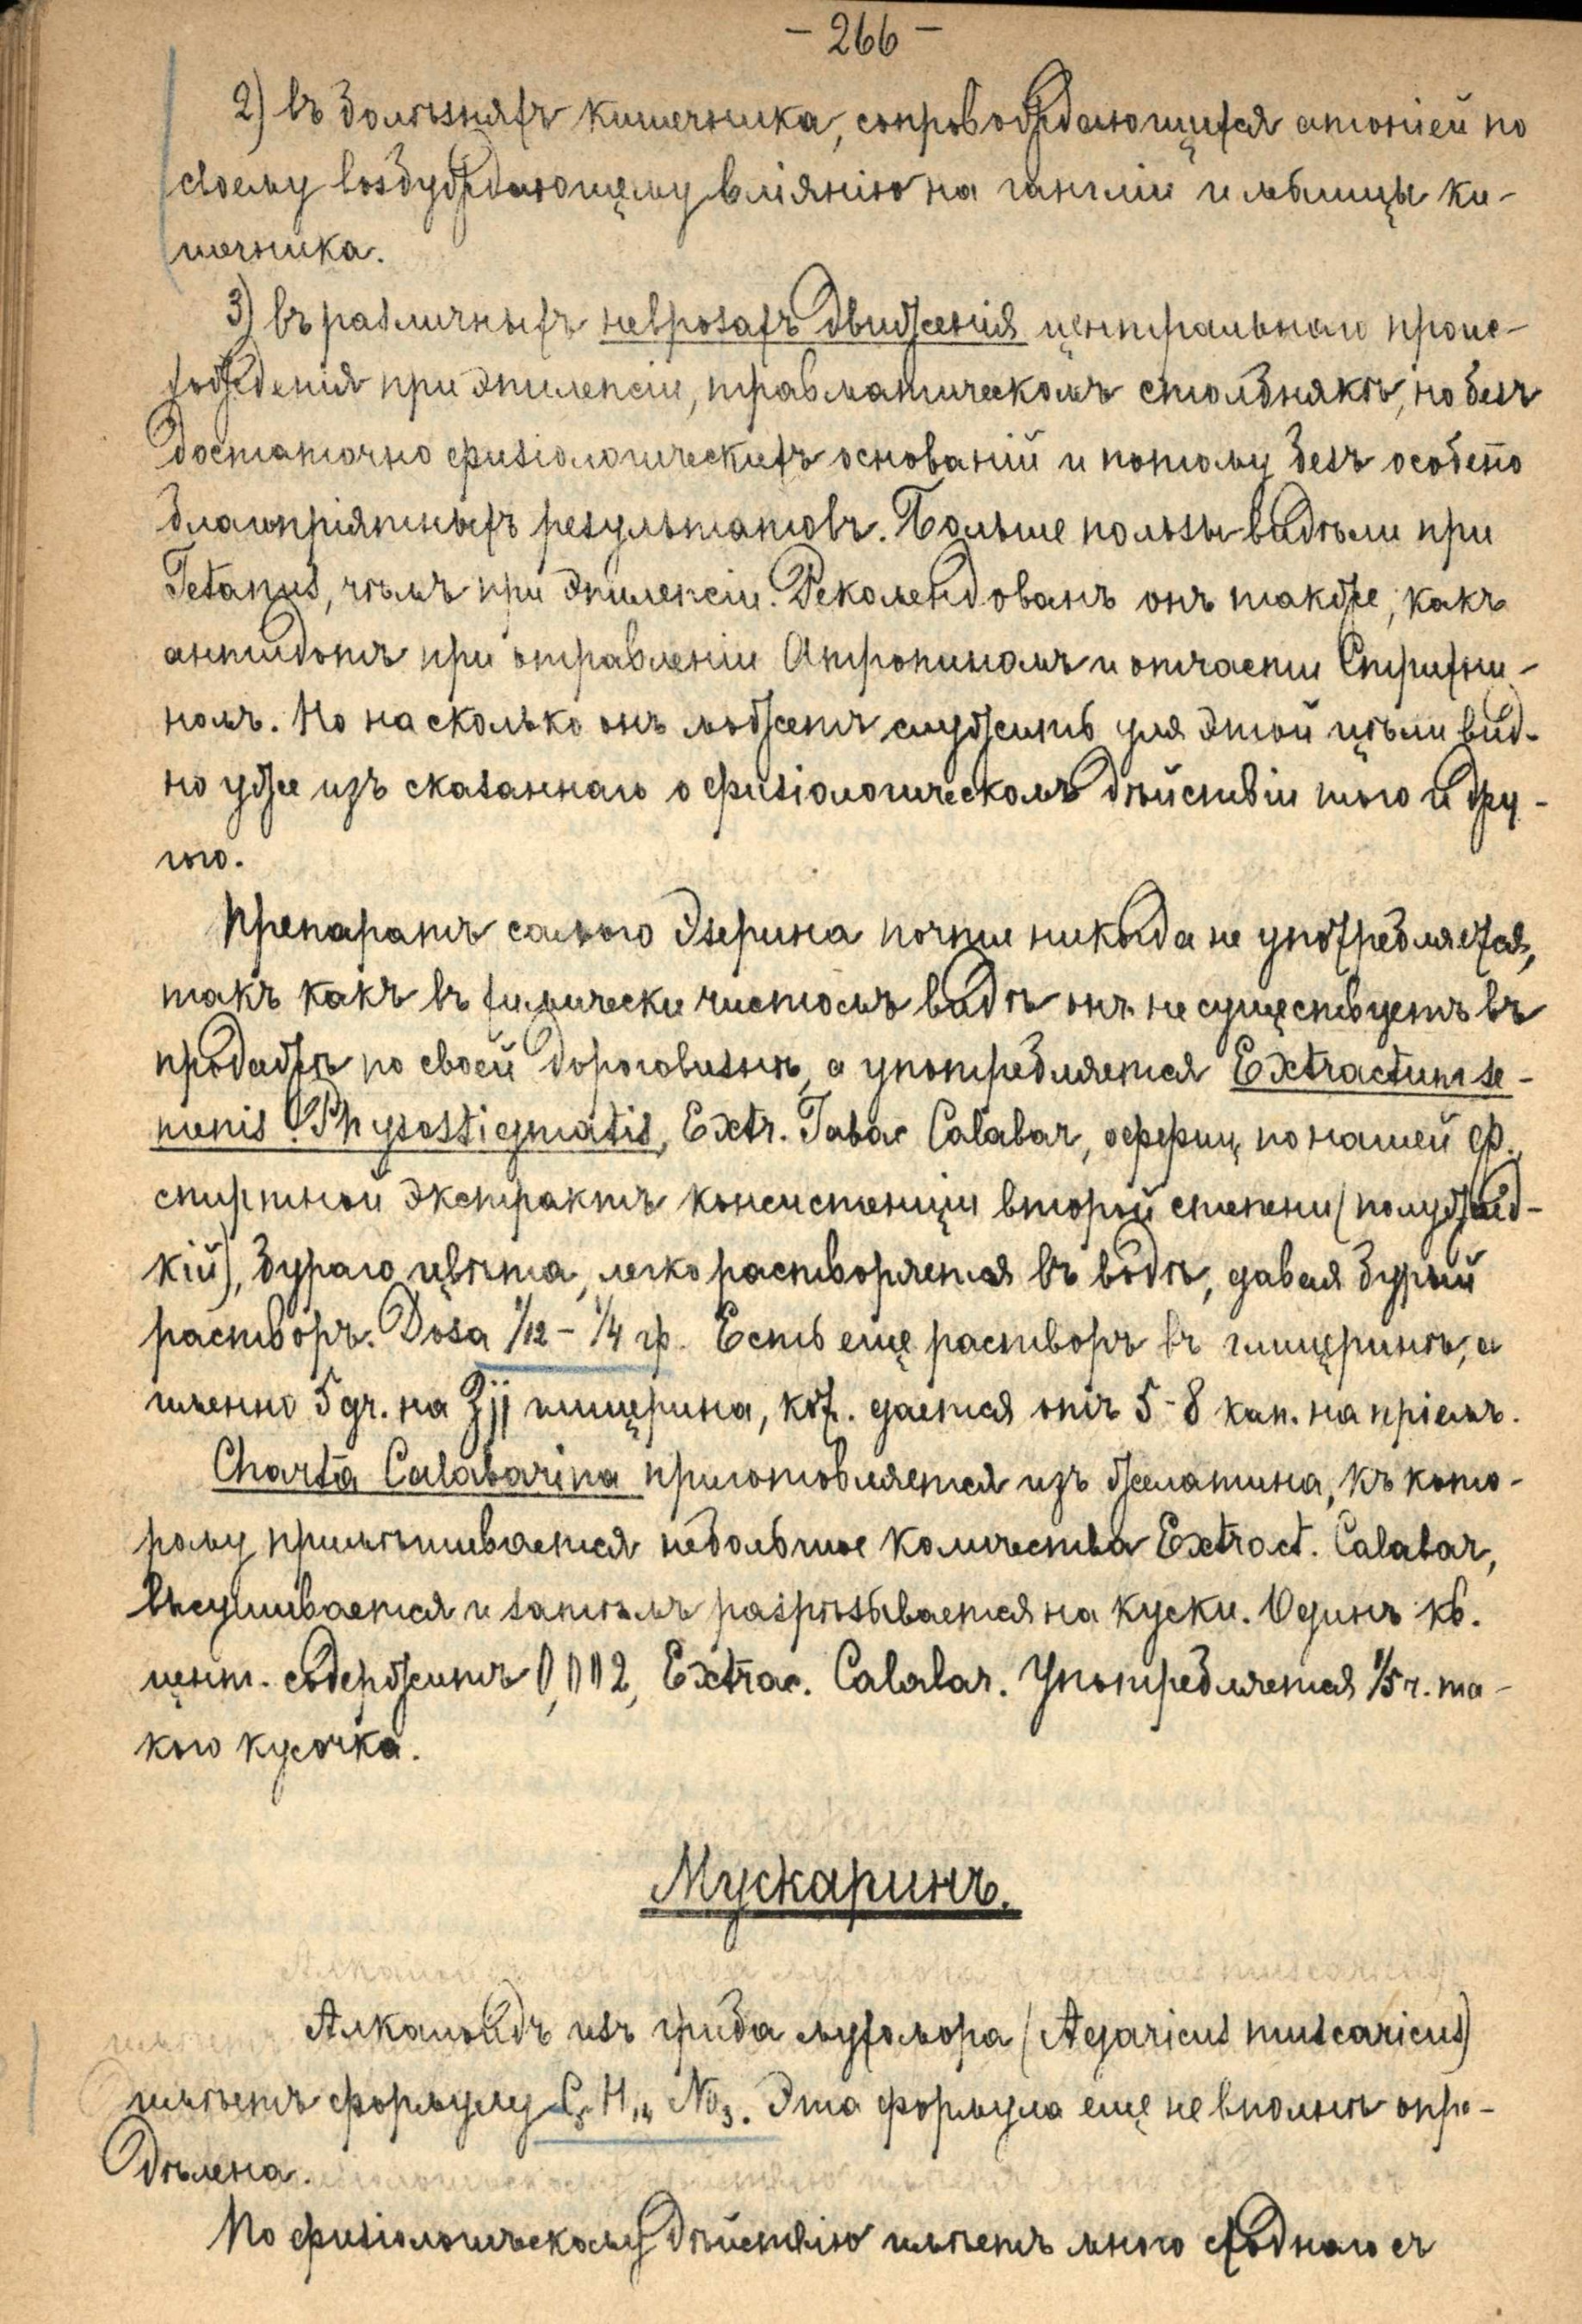 - 266 -
2) въ болѣзняхъ кишечника, сопровождающихся атоніей по
своему возбуждающему вліянію на гангліи и мышцы ки-
шечника.
3) въ различныхъ неврозахъ движенія центральнаго проис-
хожденія при эпилепсіи, травматическомъ столбнякѣ, но безъ
достаточно физіологическихъ основаній и потому безъ особено
благопріятныхъ результатовъ. Больше пользы видѣли при
Tetanus, чѣмъ при эпилепсіи. Рекомендованъ онъ также, какъ
антидотъ при отравленіи Атропиномъ и отчасти Стрихни-
номъ. Но на сколько онъ можетъ служить для этой цѣли вид-
но уже изъ сказаннаго о физіологическомъ дѣйствіи того и дру-
гого.
Препаратъ самого Эзерина почти никогда не употребляется,
такъ какъ въ химически чистомъ видѣ онъ не существуетъ въ
продажѣ по своей дороговизнѣ, а употребляется Extractum se-
menis Physostigmatis, Extr. Fabae Calabar, оффиц. по нашей Ф.,
спиртной экстрактъ консистенціи второй степени (полужид-
кій), бураго цвѣта, легко растворяется въ водѣ, давая бурый
растворъ. Dosa 1/12 - 1/4 гр. Есть еще растворъ въ глицеринѣ, а
именно 5 gr. на ʒjj глицерина, кот. дается отъ 5-8 кап. на пріемъ.
Charta Calabarina приготовляется изъ желатина, къ кото-
рому примѣшивается небольшое количества Extract. Calabar,
высушивается и затѣмъ разрѣзывается на куски. Одинъ кв.
цент. содержитъ 0,002, Extrac. Calabar. Употребляется 1/5 ч. та-
кого кусочка.
Мускаринъ.
Алкалоидъ изъ гриба мухомора (Agaricus muscaricus)
имѣетъ формулу C5 H14 NO3. Эта формула еще не вполнѣ опре-
дѣлена.
По физіологическому дѣйствію имѣетъ много сходнаго съ